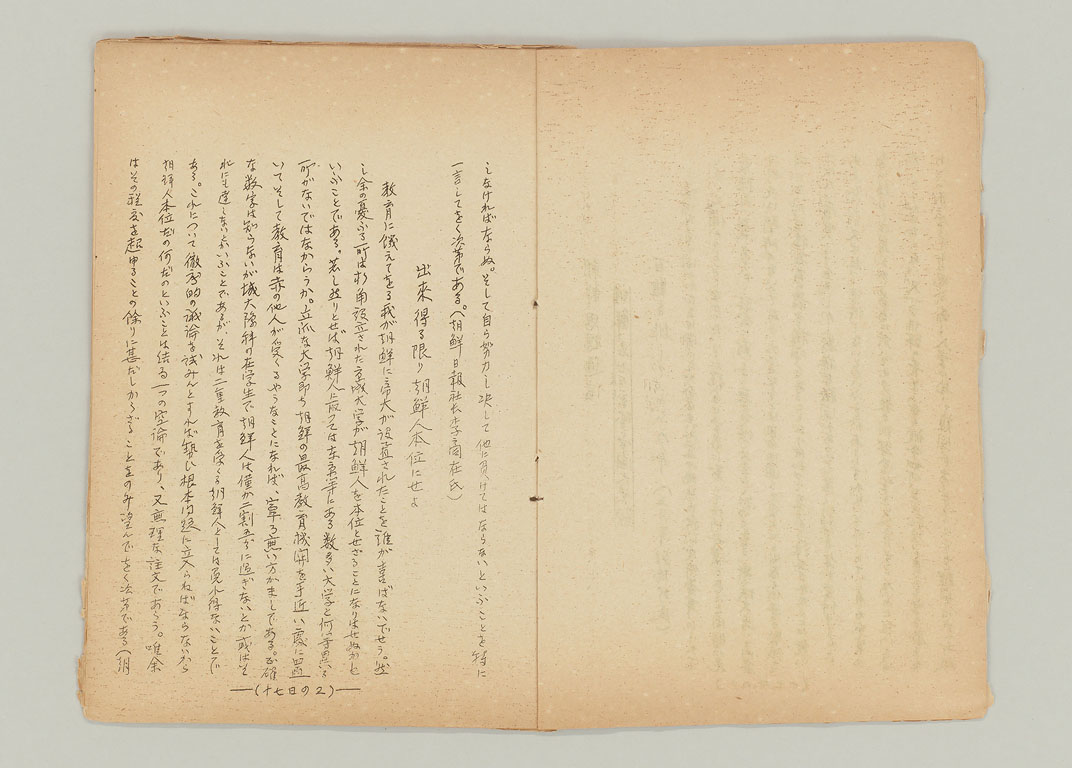 しなければならぬ。そして自ら努力し決して他に負けてはならないといふことを特に
一言してをく次第である。(朝鮮日報社長李商在氏)
出来得る限り朝鮮人本位にせよ
教育に餓えてをる我が朝鮮に帝大が設置されたことを誰が喜ばないでせう。然
し余の憂ふる所は折角設立された京城大学が朝鮮人を本位とせざることになりはせぬかと
いふことである。若し然りとせば朝鮮人に取つては東京等にある数多い大学と何等異る
所がないではなからうか。立派な大学即ち朝鮮の最高教育機関を手近い処に置
いてそして教育は赤の他人が受くるやうなことになれば、寧ろ無い方がましである。正確
な数字は知らないが城大予科の在学生で朝鮮人は僅か二割五分に過ぎないとか或はそ
れにも達しないといふことであるが、それは二重教育を受くる朝鮮人としては免れ得ないことで
ある。これについて徹底的の議論を試みんとすれば勢ひ根本問題に立入らねばならないから
朝鮮人本位だの何だのといふことは結局一つの空論であり、又無理な注文であらう。唯余
はその程度を超ゆることの余りに甚だしからざることをのみ望んでをく次第である(朝
―(十七日の2)―